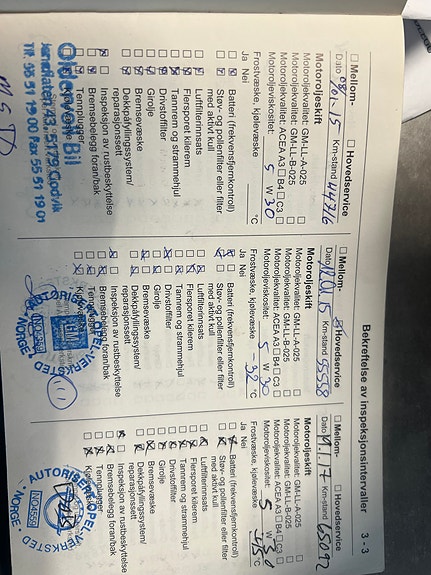 Bekreftelse av inspeksjonsintervaller 3 - 3
☐ Mellom- ☐ Hovedservice
Dato 08/01-15 Km-stand 44716
Motoroljeskift
☐ Motoroljekvalitet: GM-LL-A-025
☐ Motoroljekvalitet: GM-LL-B-025
☐ Motoroljekvalitet: ACEA A3 ☐ B4 ☐ C3
Motoroljeviskositet: 5 W 30
Frostvæske, kjølevæske °C
Ja Nei
Batteri (frekvensfjernkontroll)
Støv- og pollenfilter eller filter
med aktivt kull
Luftfilterinnsats
Flersporet kilerem
Tannrem og strammehjul
Drivstoffilter
Girolje
Bremsevæske
Dekkpåfyllingssystem/
reparasjonssett
Inspeksjon av rustbeskyttelse
Bremsebelegg foran/bak
Tennplugger
Bil
Tlf. 56 51 19 00 Fax 55 51 19 01
☐ Mellom- Hovedservice
Dato Km-stand 55558
Motoroljeskift
☐ Motoroljekvalitet: GM-LL-A-025
☐ Motoroljekvalitet: GM-LL-B-025
☐ Motoroljekvalitet: ACEA A3 ☐ B4 ☐ C3
Motoroljeviskositet: 5 W 30
Frostvæske, kjølevæske -32 °C
Ja Nei
Batteri (frekvensfjernkontroll)
Støv- og pollenfilter eller filter
med aktivt kull
Luftfilterinnsats
Flersporet kilerem
Tannrem og strammehjul
Drivstoffilter
Girolje
Bremsevæske
Dekkpåfyllingssystem/
reparasjonssett
Inspeksjon av rustbeskyttelse
Bremsebelegg foran/bak
Tennplugger
AUTORISERT OPEL-VERKSTED
NORGE
☐ Mellom- ☐ Hovedservice
Dato Km-stand 65092
Motoroljeskift
☐ Motoroljekvalitet: GM-LL-A-025
☐ Motoroljekvalitet: GM-LL-B-025
☐ Motoroljekvalitet: ACEA A3 ☐ B4 ☐ C3
Motoroljeviskositet: 5 W 30
Frostvæske, kjølevæske °C
Ja Nei
Batteri (frekvensfjernkontroll)
Støv- og pollenfilter eller filter
med aktivt kull
Luftfilterinnsats
Flersporet kilerem
Tannrem og strammehjul
Drivstoffilter
Girolje
Bremsevæske
Dekkpåfyllingssystem/
reparasjonssett
Inspeksjon av rustbeskyttelse
Bremsebelegg foran/bak
Tennplugger
AUTORISERT OPEL-VERKSTED
NORGE